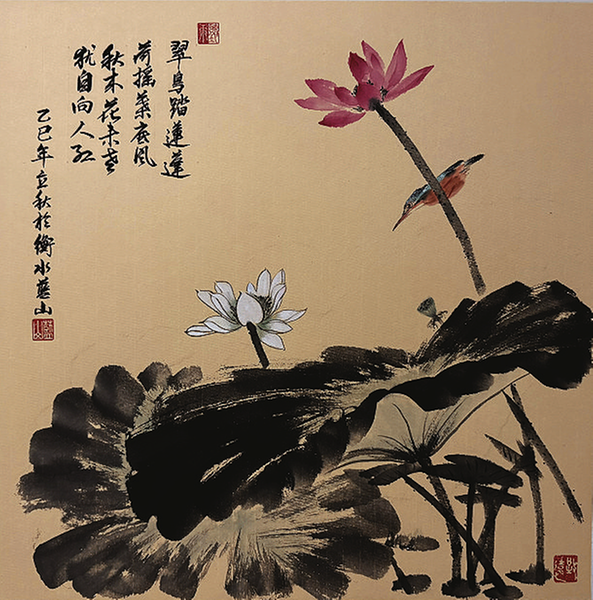 翠鸟踏莲蓬
荷摇叶底风
秋来花未老
犹自向人红
乙巳年立秋於衡水蓝山